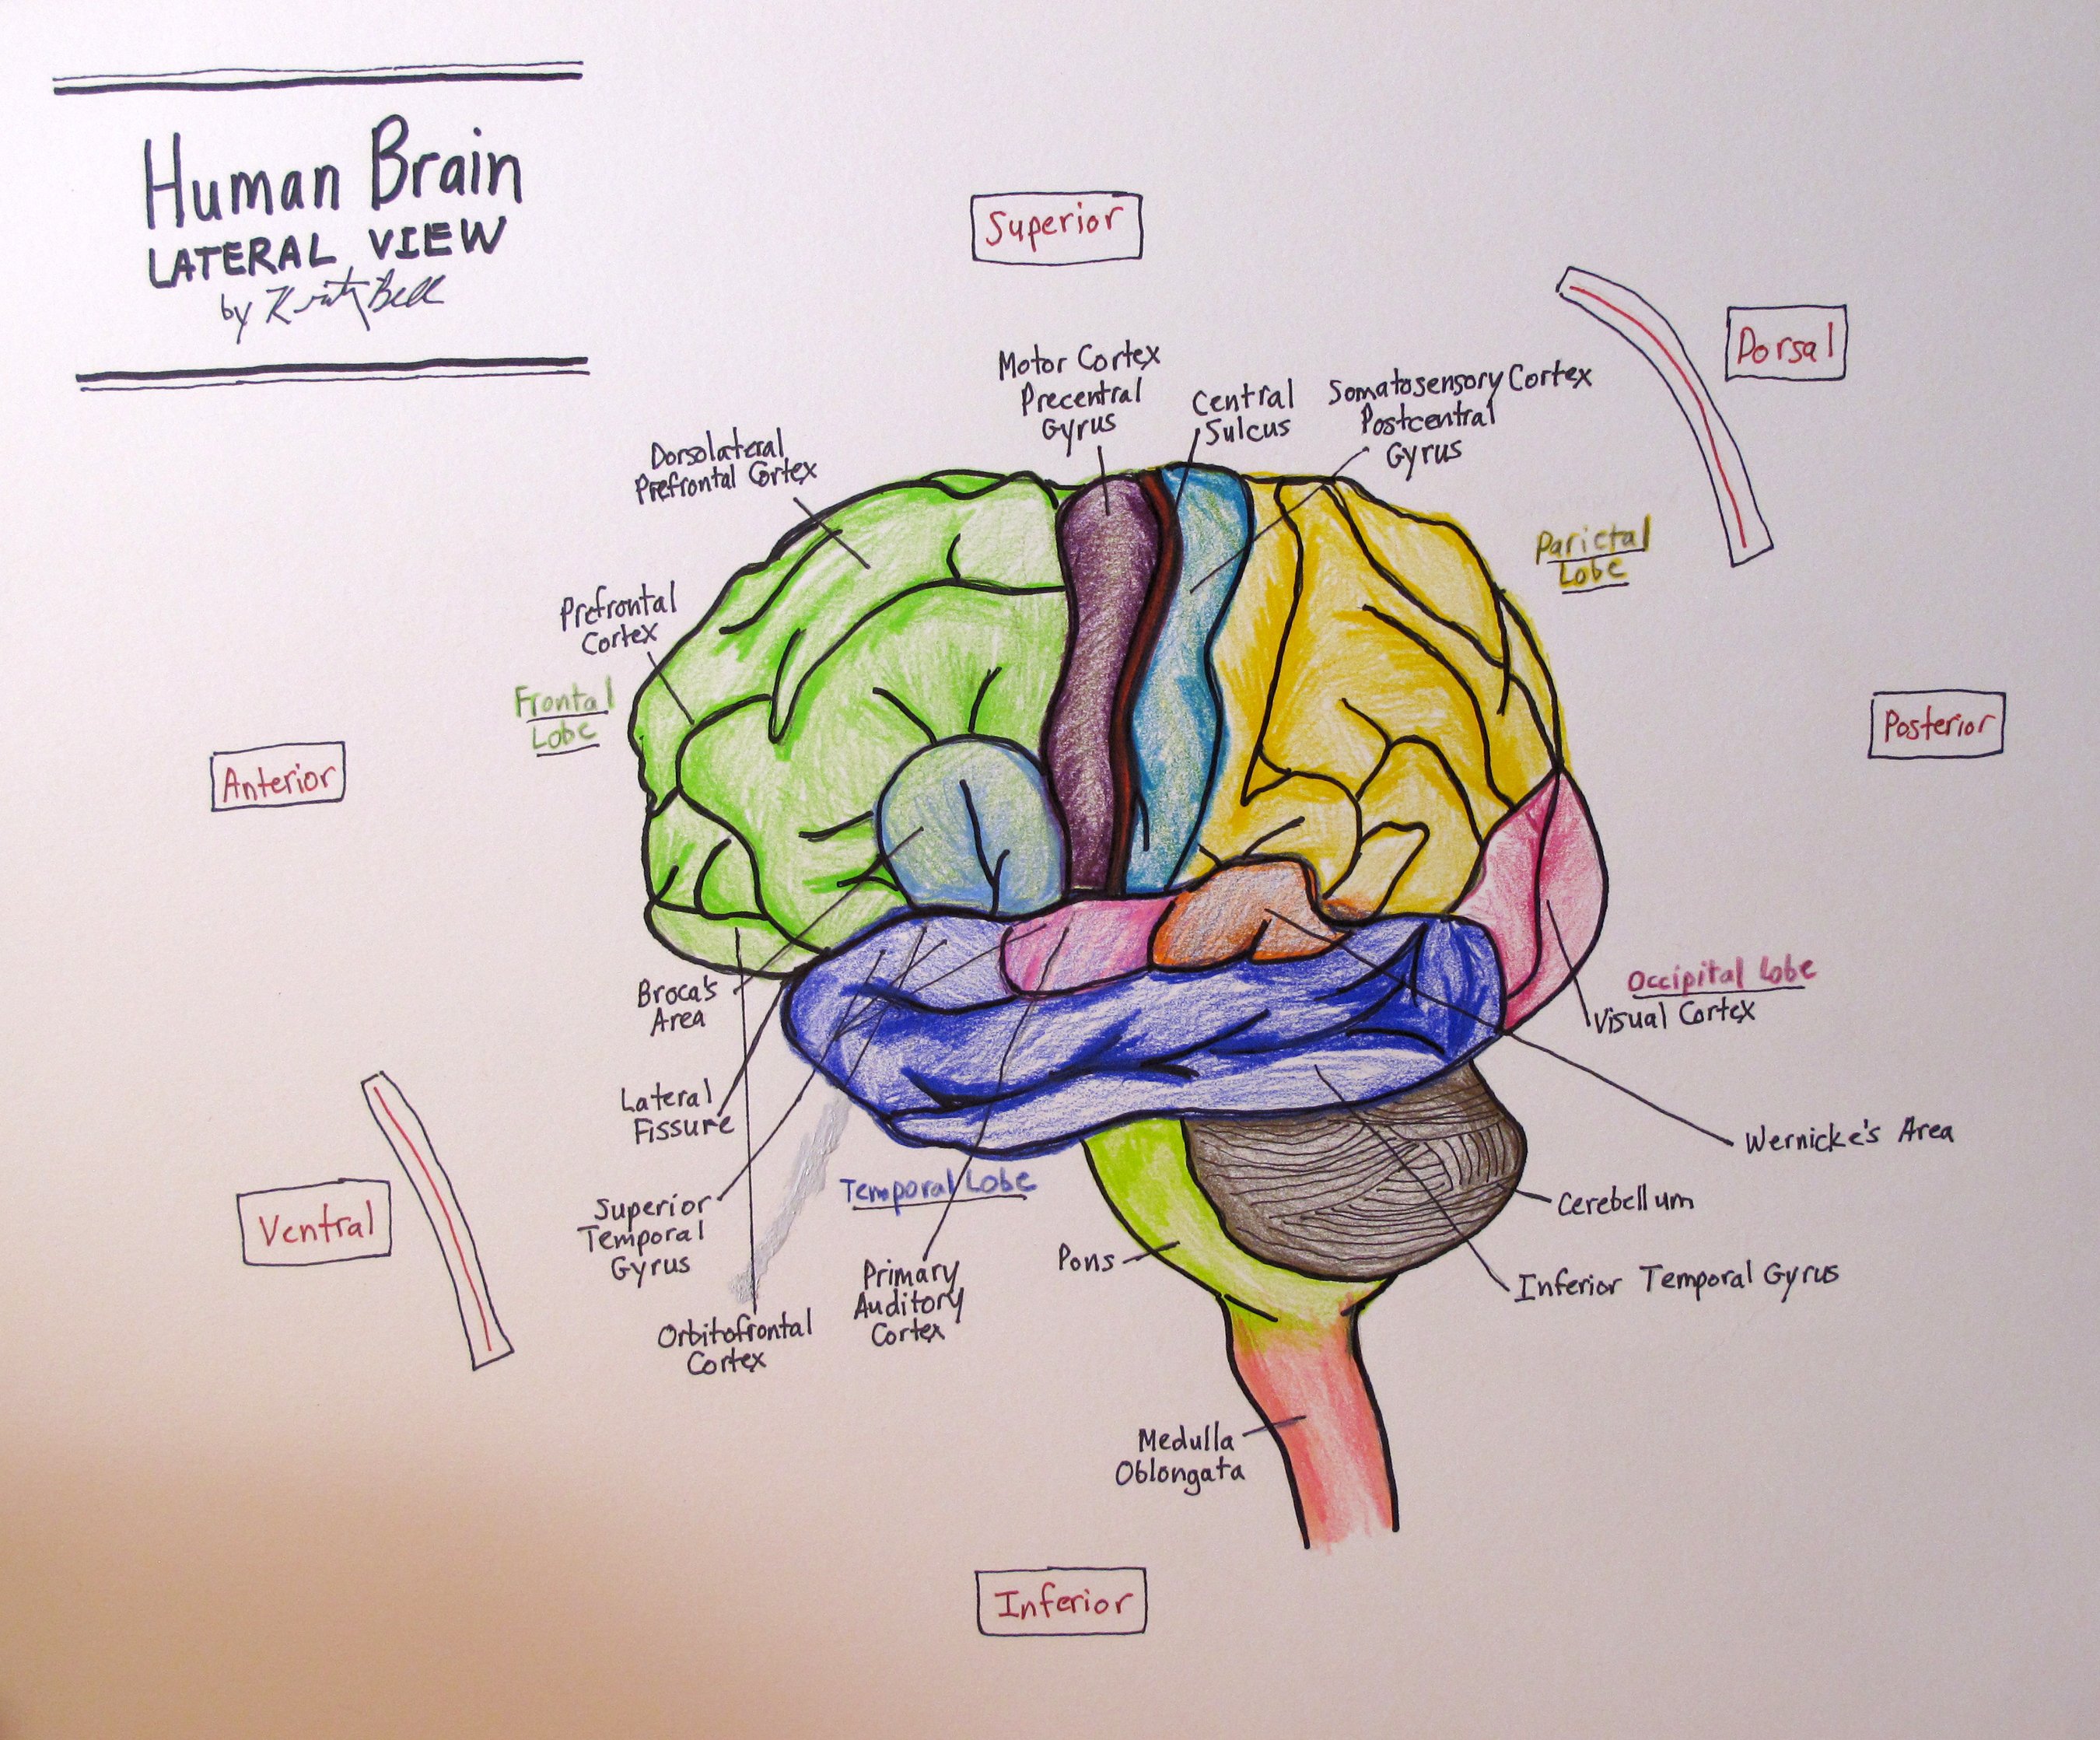 Human Brain
LATERAL VIEW
by Kristy Bell
Superior
Dorsal
Motor Cortex
Precentral
Gyrus
Central
Sulcus
Somatosensory Cortex
Postcentral
Gyrus
Dorsolateral
Prefrontal Cortex
Parietal
Lobe
Prefrontal
Cortex
Frontal
Lobe
Anterior
Posterior
Occipital Lobe
Visual Cortex
Broca's
Area
Lateral
Fissure
Wernicke's Area
Temporal Lobe
Cerebellum
Superior
Temporal
Gyrus
Ventral
Pons
Primary
Auditory
Cortex
Inferior Temporal Gyrus
Orbitofrontal
Cortex
Medulla
Oblongata
Inferior